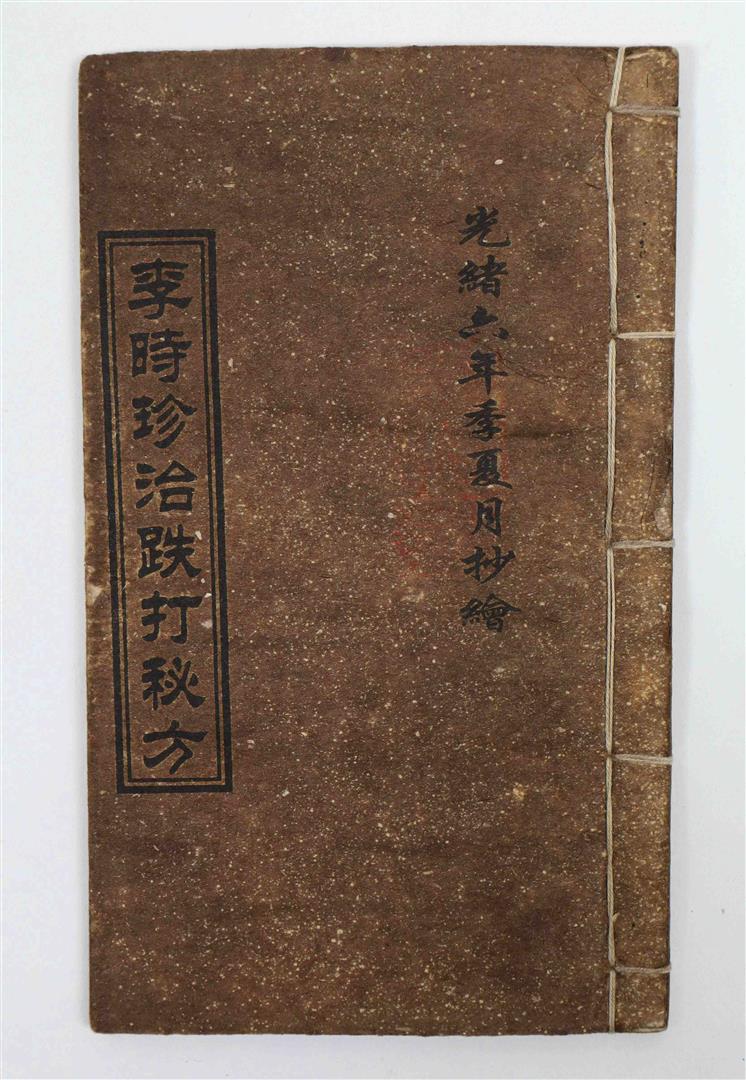 光緒六年季夏月抄繪
李時珍治跌打秘方